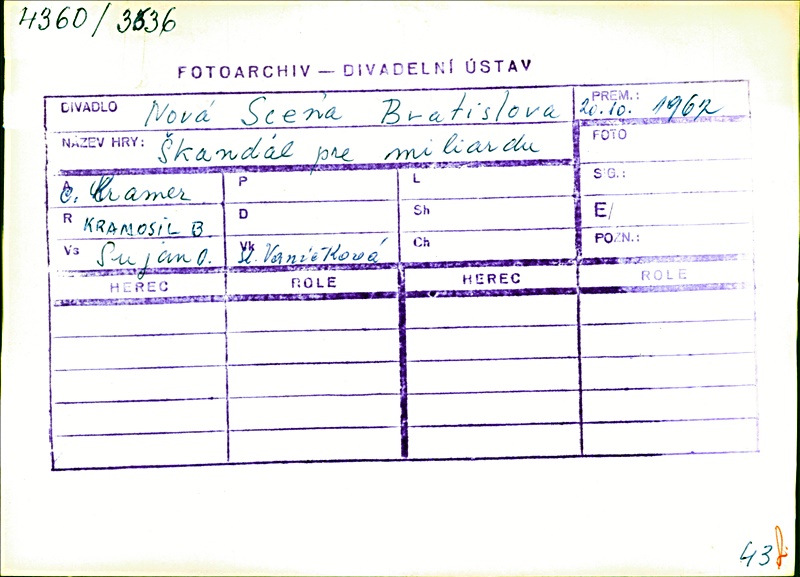 4360/3536
FOTOARCHIV — DIVADELNÍ ÚSTAV
DIVADLO Nová Scéna Bratislova
PREM.: 20.10. 1962
NÁZEV HRY: Škandál pre miliardu
FOTO
A O. Kramer
P
L
SIG.:
R KRAMOSIL B.
D
Sh
E/
Vs Šujan O.
Vk Vaničková
Ch
POZN.:
HEREC ROLE HEREC ROLE
43